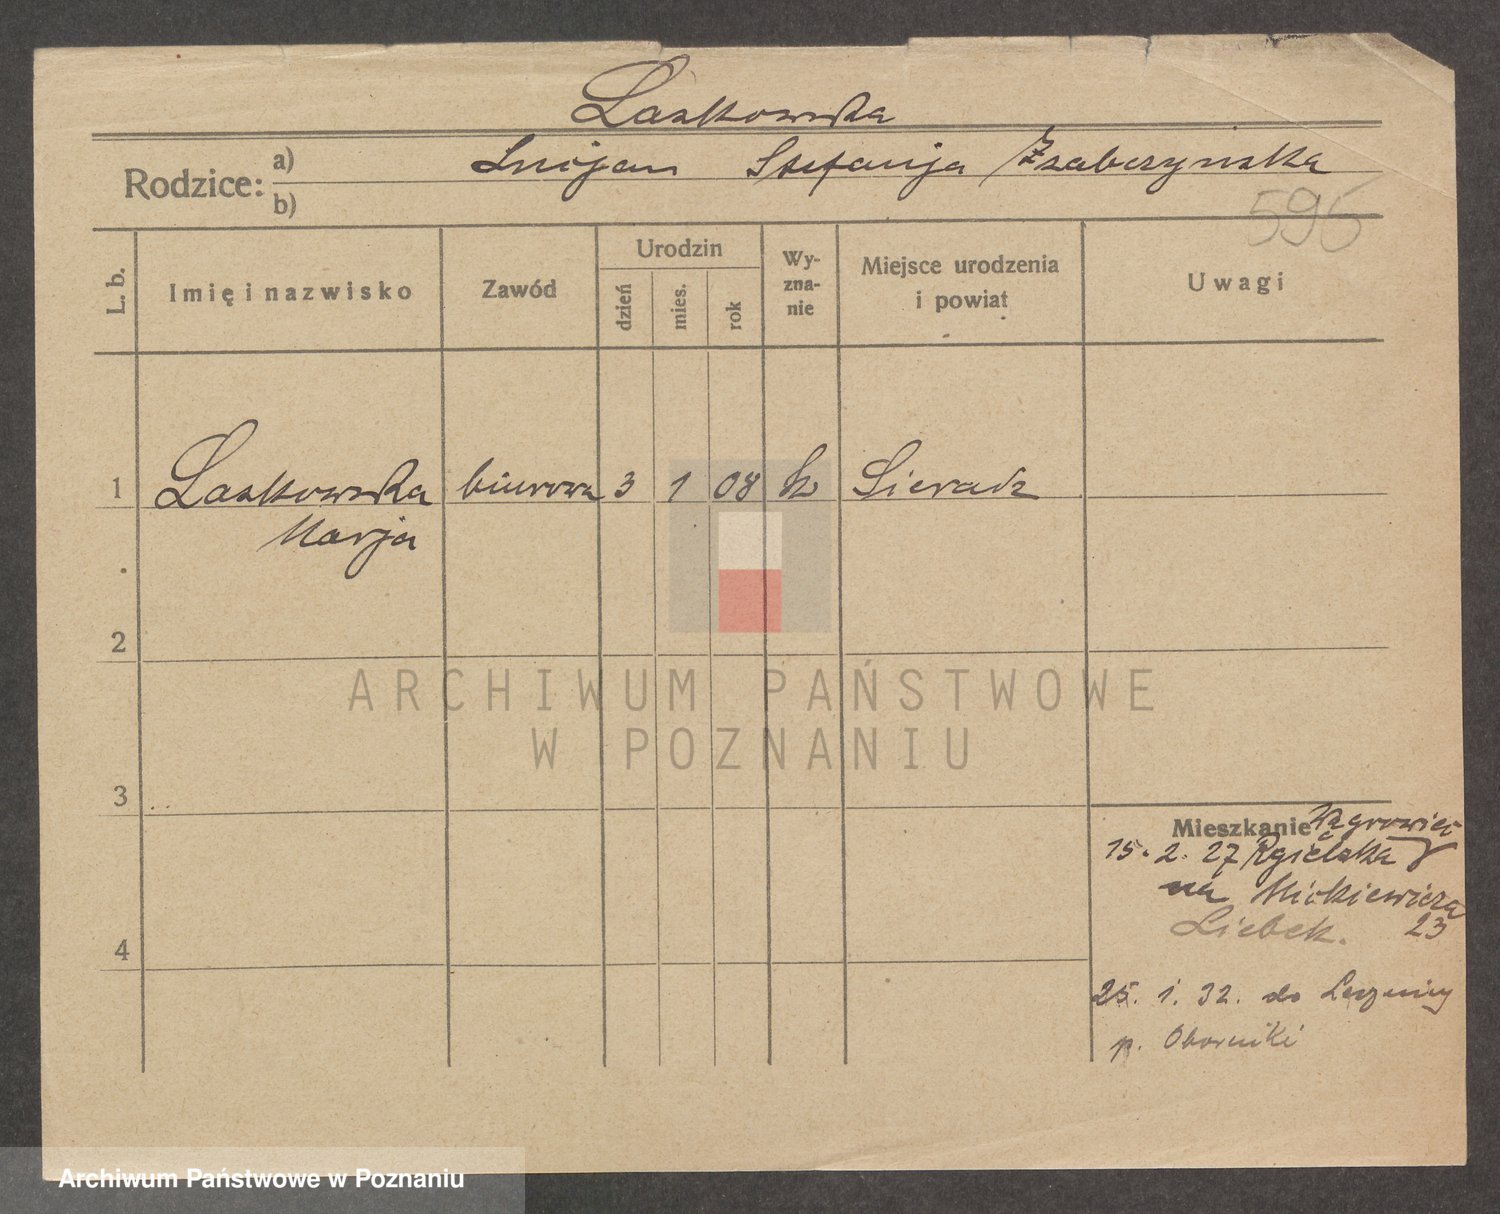 Laskowska
Rodzice: a) Lucijan Stefanja Zabczyńska
b)
596
L. b.
Imię i nazwisko
Zawód
Urodzin
dzień
mies.
rok
Wy-
zna-
nie
Miejsce urodzenia
i powiat
Uwagi
1 Laskowska biurowa 3 1 08 Sieradz
Marja
2
ARCHIWUM PAŃSTWOWE
W POZNANIU
3
Mieszkanie Wągrowiec
15. 2. 27 Rgielska
na Mickiewicza
Liebek. 23
4
25. 1. 32. do
p. Oborniki
Archiwum Państwowe w Poznaniu